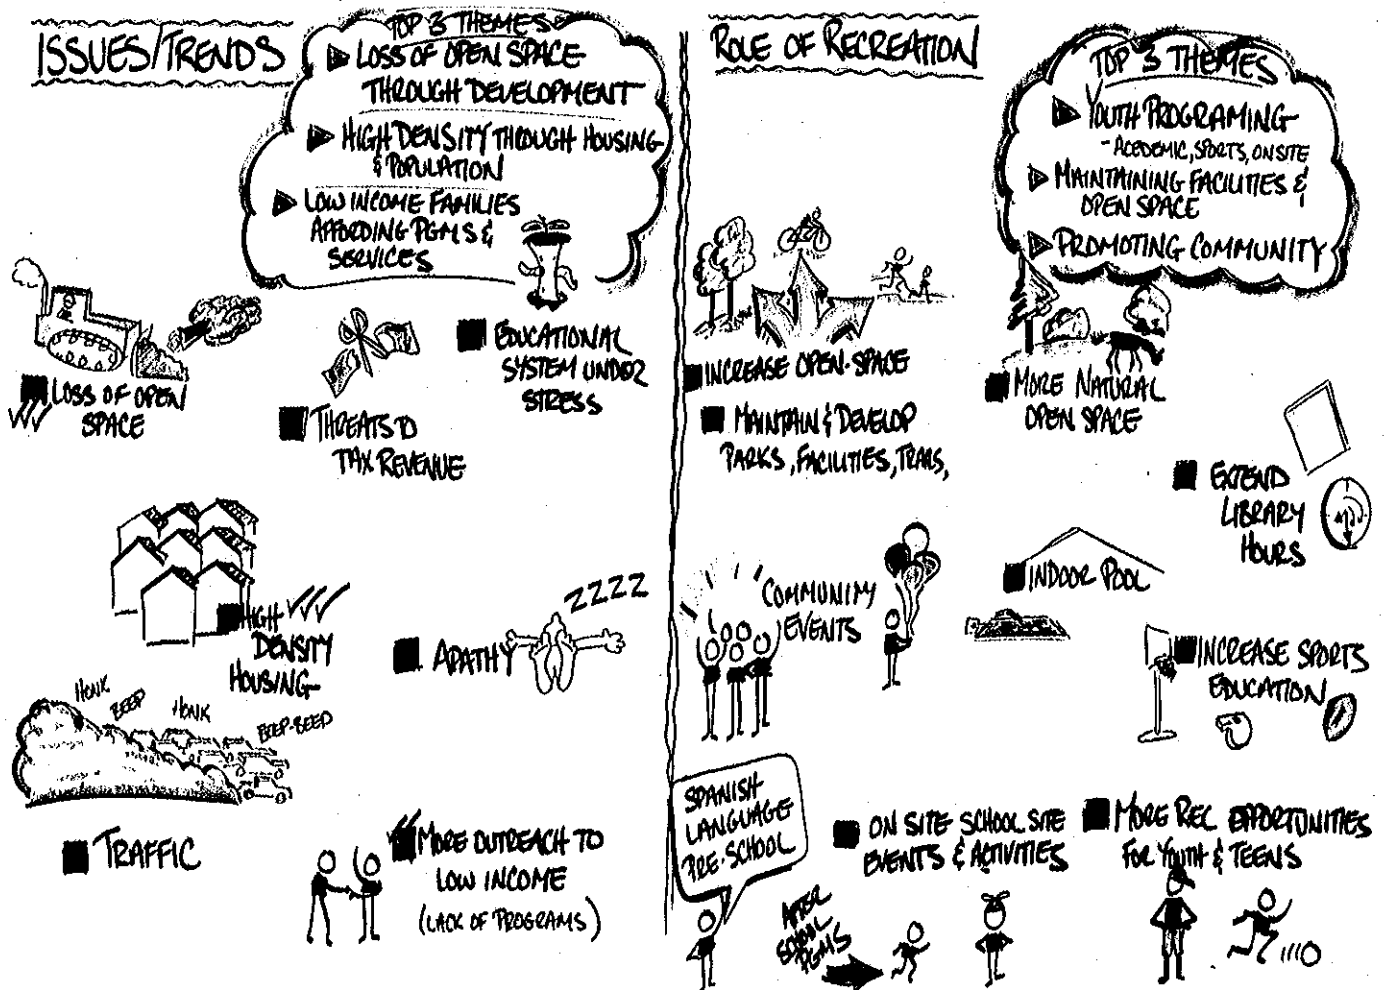 ISSUES/TRENDS
TOP 3 THEMES
LOSS OF OPEN SPACE
THROUGH DEVELOPMENT
HIGH DENSITY THROUGH HOUSING
& POPULATION
LOW INCOME FAMILIES
AFFORDING PGMS &
SERVICES
LOSS OF OPEN
SPACE
THREATS TO
TAX REVENUE
EDUCATIONAL
SYSTEM UNDER
STRESS
HIGH
DENSITY
HOUSING
ZZZZ
APATHY
HONK
BEEP
HONK
BEEP-BEEP
TRAFFIC
MORE OUTREACH TO
LOW INCOME
(LACK OF PROGRAMS)
ROLE OF RECREATION
TOP 3 THEMES
YOUTH PROGRAMING
- ACEDEMIC, SPORTS, ONSITE
MAINTAINING FACILITIES &
OPEN SPACE
PROMOTING COMMUNITY
INCREASE OPEN-SPACE
MAINTAIN & DEVELOP
PARKS, FACILITIES, TRAILS,
MORE NATURAL
OPEN SPACE
EXTEND
LIBRARY
HOURS
COMMUNITY
EVENTS
INDOOR POOL
INCREASE SPORTS
EDUCATION
SPANISH
LANGUAGE
PRE-SCHOOL
ON SITE SCHOOL SITE
EVENTS & ACTIVITIES
MORE REC OPPORTUNITIES
FOR YOUTH & TEENS
AFTER
SCHOOL
PGMS